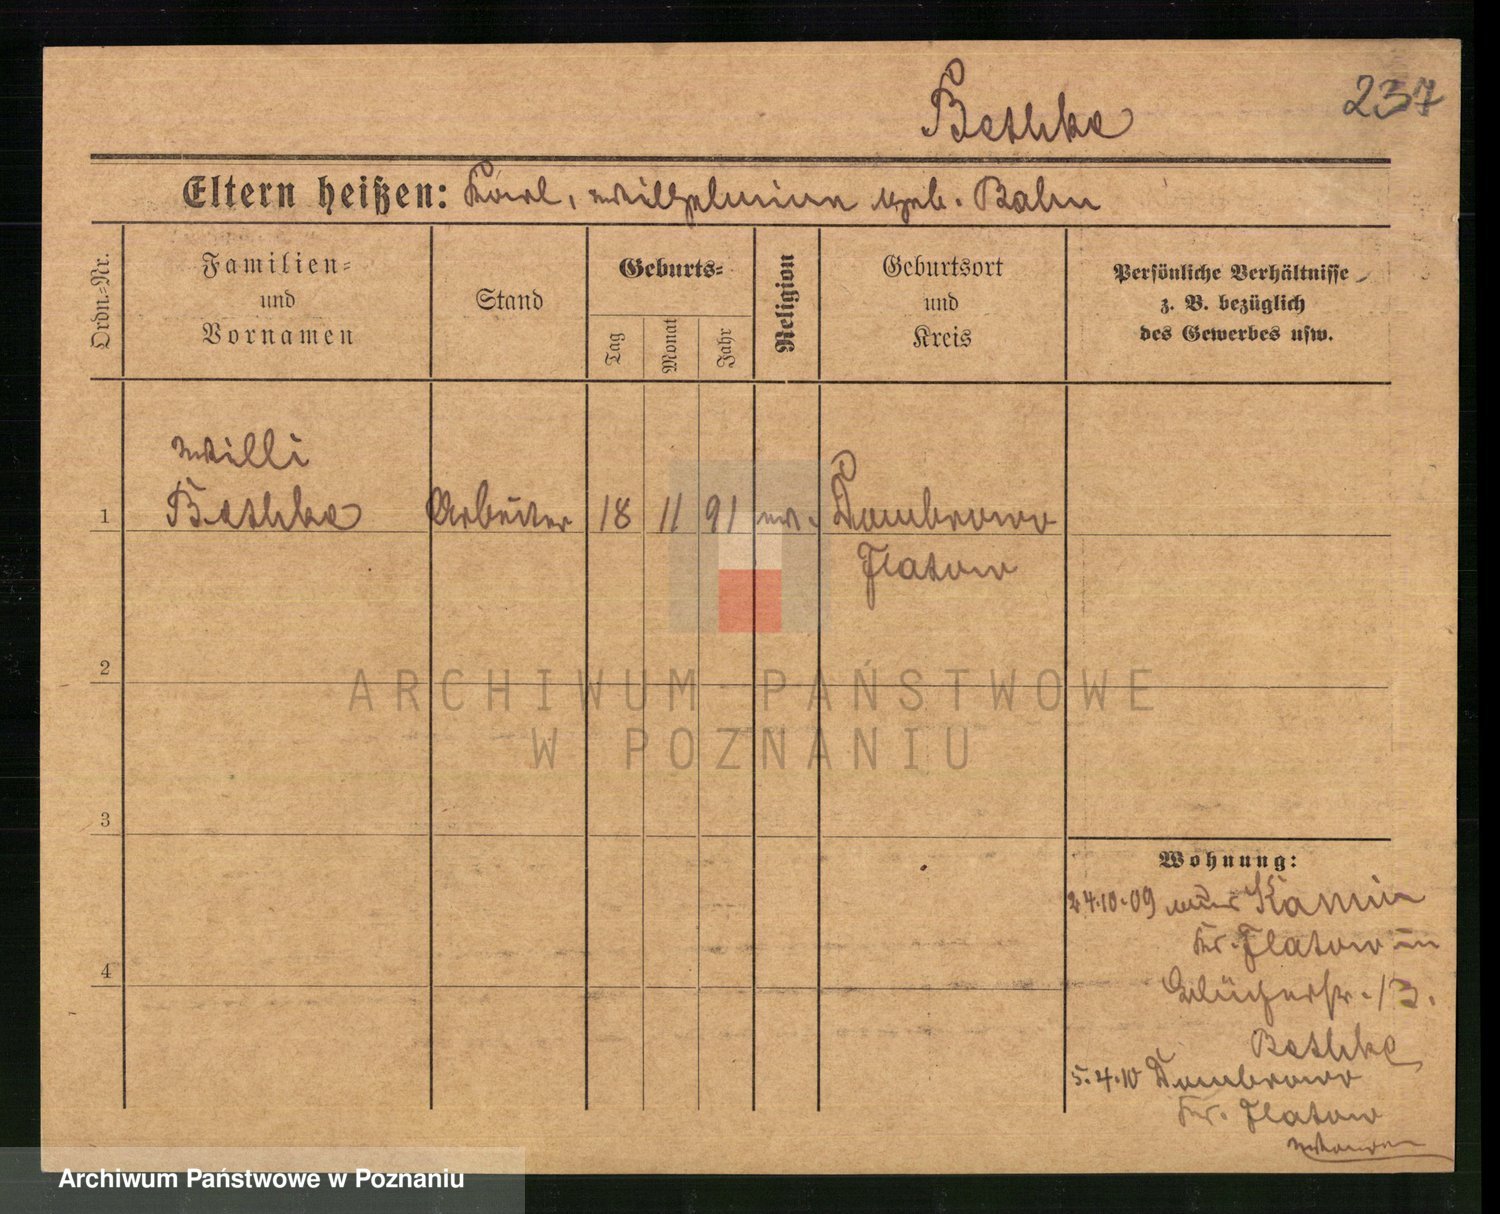 Bethke
237
Eltern heißen: Karl, Wilhelmine geb. Bahn
Ordn.-Nr.
Familien-
und
Vornamen
Stand
Geburts-
Tag
Monat
Jahr
Religion
Geburtsort
und
Kreis
Persönliche Verhältnisse
z. B. bezüglich
des Gewerbes usw.
Willi
1 Bethke Arbeiter 18 11 91 ev. Dombrowo
Flatow
2
3
4
Wohnung:
24.10.09 Kamin
Kr. Flatow
Blücherstr. 13.
Bethke
5.4.10 Dombrowo
Kr. Flatow
ARCHIWUM PAŃSTWOWE
W POZNANIU
Archiwum Państwowe w Poznaniu